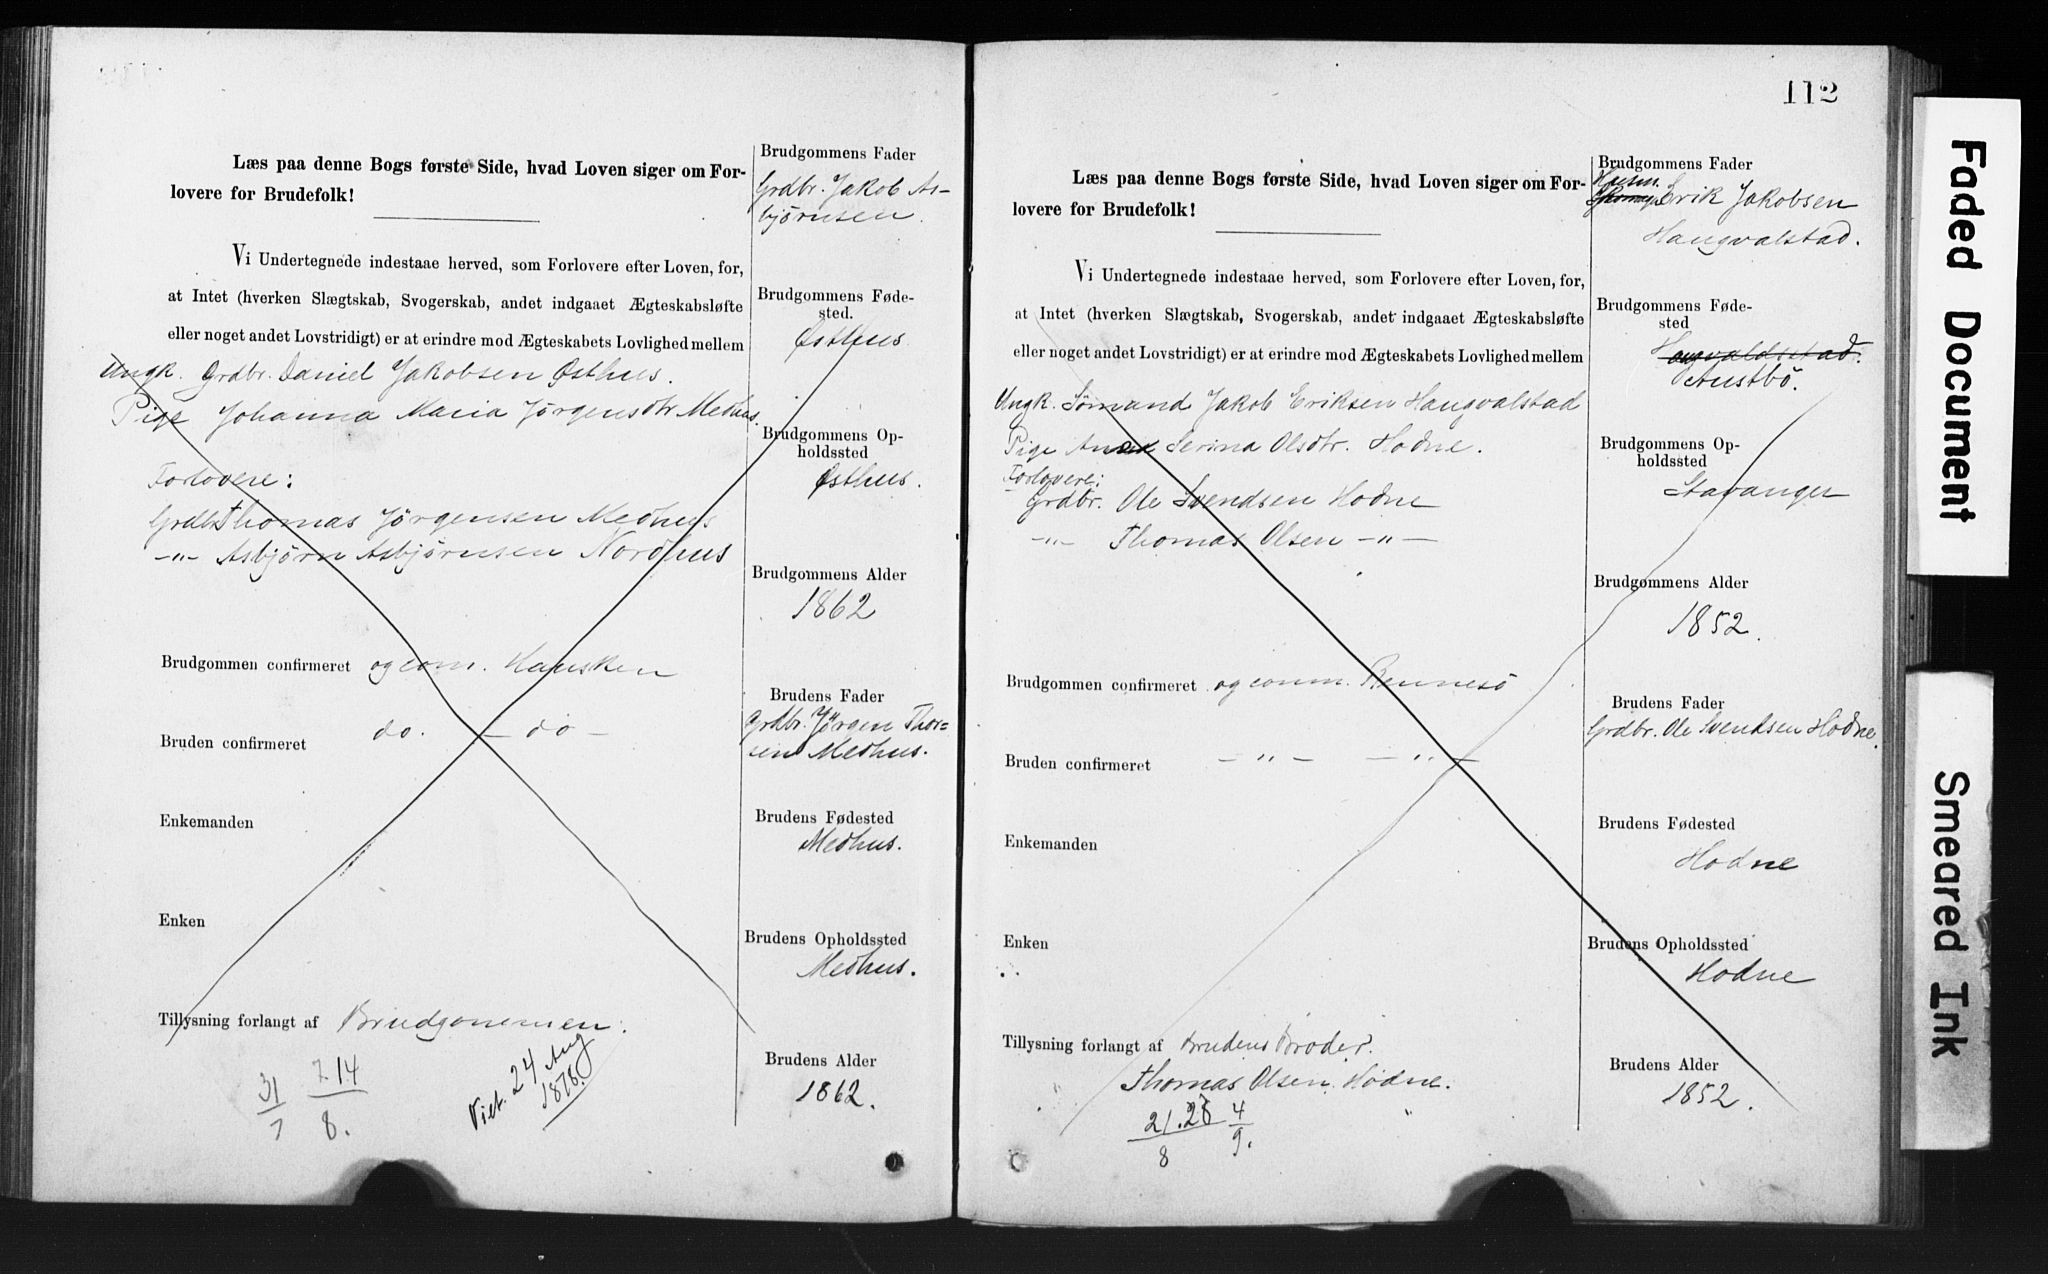 Læs paa denne Bogs første Side, hvad Loven siger om For-
lovere for Brudefolk!
Vi Undertegnede indestaae herved, som Forlovere efter Loven, for,
at Intet (hverken Slægtskab, Svogerskab, andet indgaaet Ægteskabsløfte
eller noget andet Lovstridigt) er at erindre mod Ægteskabets Lovlighed mellem
Ungk. Grdbr. Daniel Jakobsen Østhus.
Pige Johanna Maria Jørgensdtr Medhus.
Forlovere:
Grdbr Thomas Jørgensen Medhus
-"- Asbjørn Asbjørnsen Nordhus
Brudgommen confirmeret og com. Hausken
Bruden confirmeret do. - do -
Enkemanden
Enken
Tillysning forlangt af Brudgommen.
31/7 7.14/8.
Viet. 24 Aug
1878.
Brudgommens Fader
Grdbr. Jakob As-
bjørnsen.
BrudgommensFøde-
sted.
Østhus
Brudgommens Op-
holdssted
Østhus.
Brudgommens Alder
1862
Brudens Fader
Grdbr. Jørgen Thor-
sen Medhus.
Brudens Fødested
Medhus.
Brudens Opholdssted
Medhus.
Brudens Alder
1862.
112
Læs paa denne Bogs første Side, hvad Loven siger om For-
lovere for Brudefolk!
Vi Undertegnede indestaae herved, som Forlovere efter Loven, for,
at Intet (hverken Slægtskab, Svogerskab, andet indgaaet Ægteskabsløfte
eller noget andet Lovstridigt) er at erindre mod Ægteskabets Lovlighed mellem
Ungk. Sømand Jakob Eriksen Haugvalstad
Pige Serina Olsdtr. Hodne.
Forlovere:
Grdbr. Ole Svendsen Hodne
-"- Thomas Olsen -"-
Brudgommen confirmeret og comm. Rennesö
Bruden confirmeret -"- -"-
Enkemanden
Enken
Tillysning forlangt af Brudens Broder.
Thomas Olsen Hodne.
21.28/8 4/9.
Brudgommens Fader
Husm.
Erik Jakobsen
Haugvalstad.
Brudgommens Føde-
sted
Haugvaldsstad.
Austbö.
Brudgommens Op-
holdssted
Stavanger
Brudgommens Alder
1852.
Brudens Fader
Grdbr. Ole Svendsen Hodne.
Brudens Fødested
Hodne
Brudens Opholdssted
Hodne
Brudens Alder
1852.
Faded Document
Smeared Ink